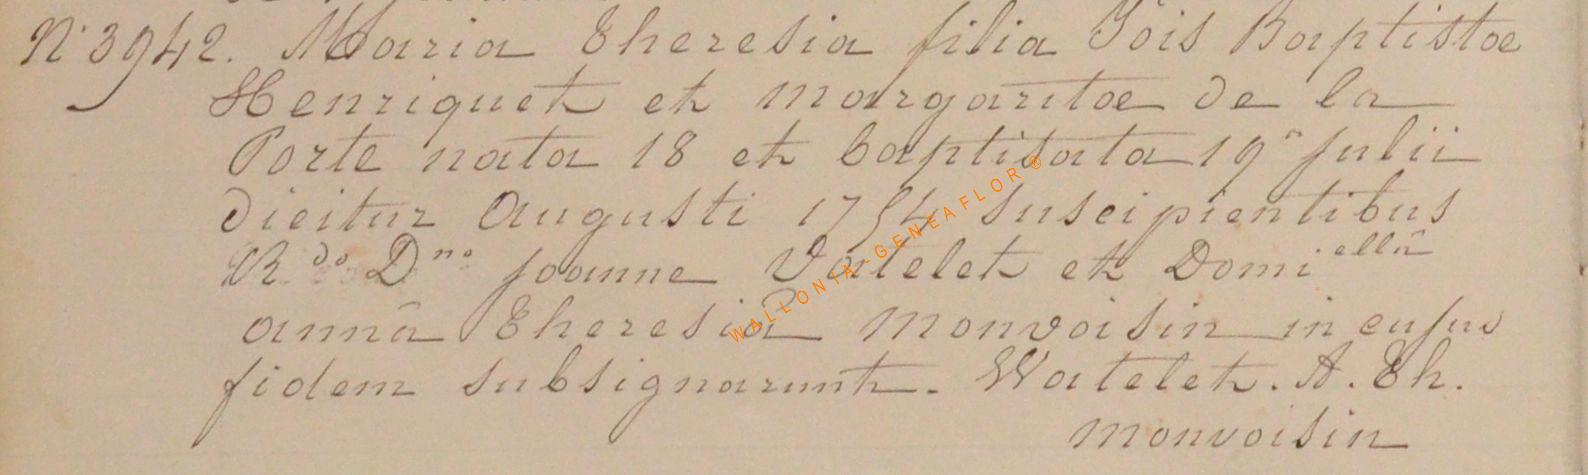 N° 3942. Maria Theresia filia Jöis Baptistae
Henriquet et margaritae de la
Porte nata 18 et baptisata 19ª julii
dicitur augusti 1754 suscipientibus
Rdo Dno joanne Vatelet et Domiellâ
annâ Theresiâ monvoisin in cujus
fidem subsignarunt. Watelet. A. Th.
monvoisin
WALLONIA-GENEAFLOR®